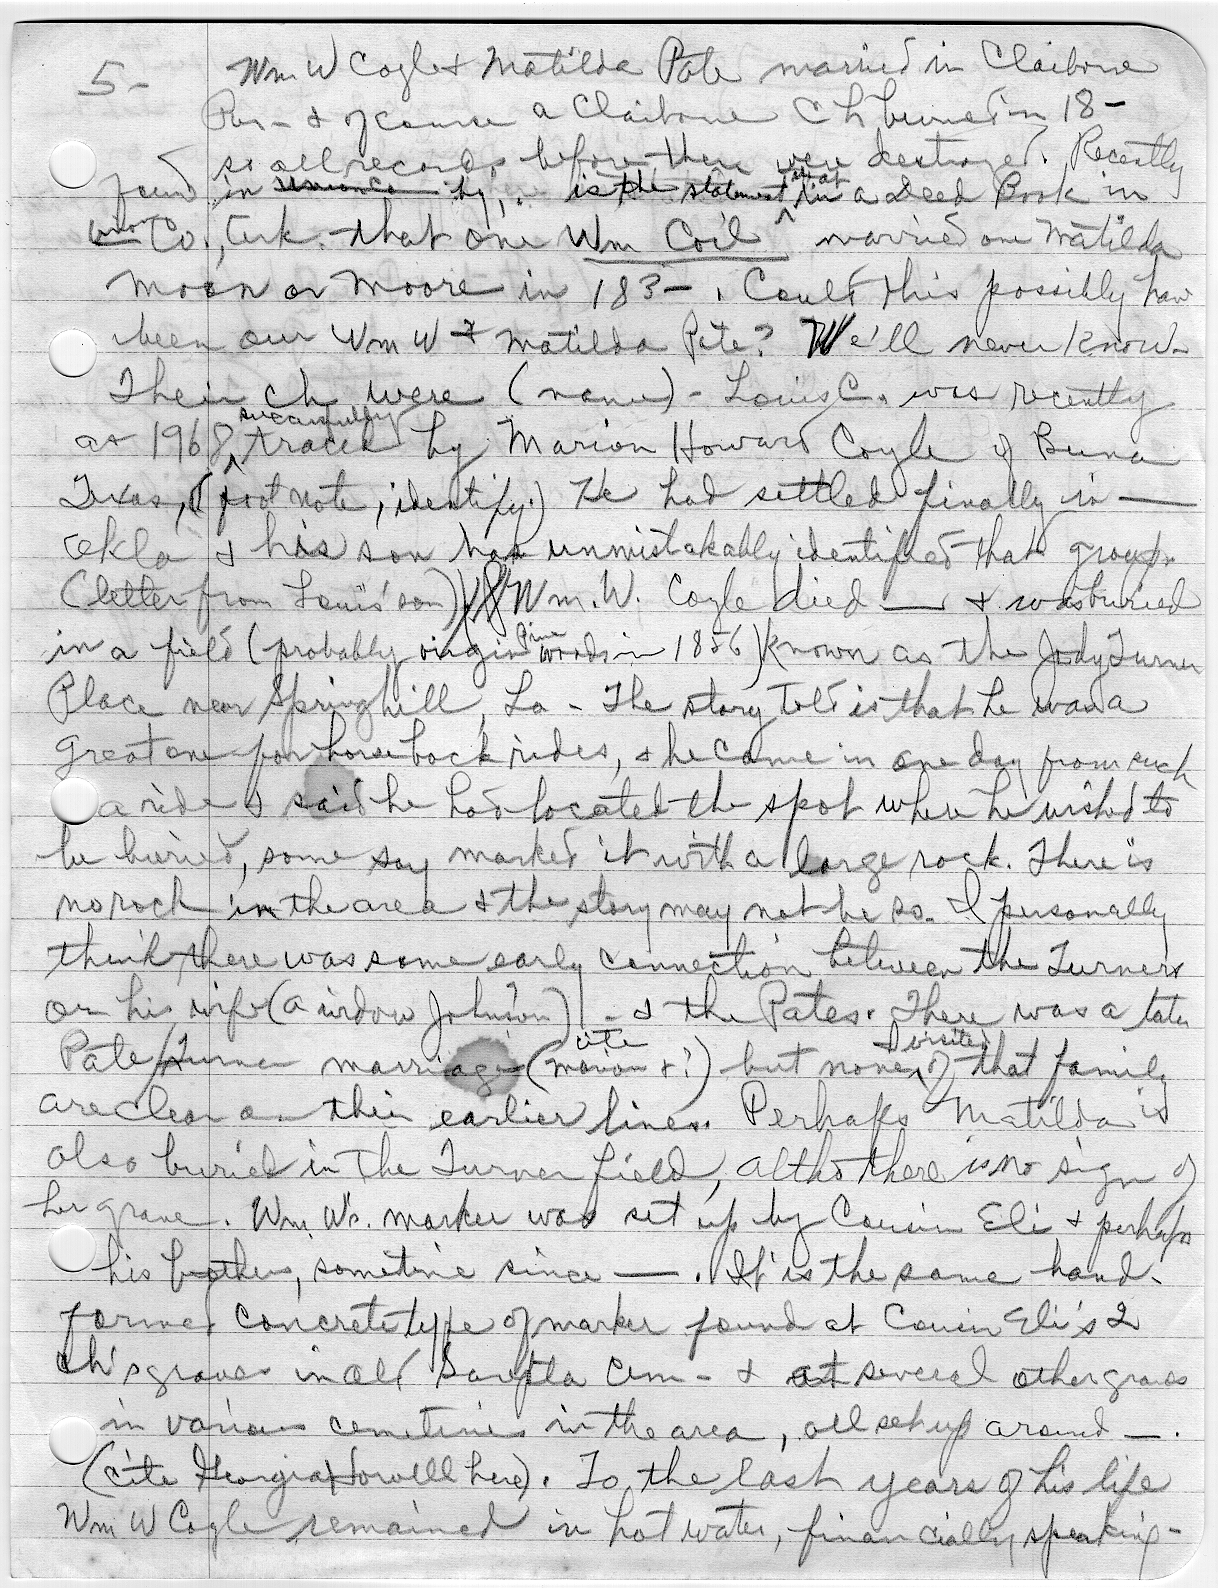 5- Wm W Cogle + Matilda Pate married in Claiborne
Par- + of course a Claiborne C h burned in 18-
so all records before then were destroyed. Recently
found in by, is the statement in a Deed Book in
Union Co., Ark. that one Wm Coil married one Matilda
Moon or Moore in 183- . Could this possibly have
been our Wm W + Matilda Pate? We'll never know-
Their ch were (name) - Louis C. was recently
as 1968, successfully traced by Marion Howard Coyle of Buna
Texas, (foot note, identify.) He had settled finally in —
Okla + his son has unmistakably identified that group.
(letter from Louis' son) Wm. W. Cogle died — + was buried
in a field (probably virgin pine woods in 1856) known as the Jody Turner
Place near Springhill, La - The story told is that he was a
great one for horse back rides, + he came in one day from such
a ride + said he had located the spot where he wished to
be buried, some say marked it with a large rock. There is
no rock in the area + the story may not be so. I personally
think there was some early connection between the Turners
or his wife (a widow Johnson) - + the Pates. There was a later
Pate/Turner marriage (cite Marion + i) but none I visited of that family
are clear on their earlier lines. Perhaps Matilda is
also buried in the Turner field, altho there is no sign of
her grave. Wm W's. marker was set up by Cousin Eli + perhaps
his brothers, sometime since — . It is the same hand-
formed concrete type of marker found at Cousin Eli's 2
ch's graves in old Sarepta Cem - + at several other graves
in various cemeteries in the area, all set up around — .
(cite Georgia Howell here). To the last years of his life
Wm W Cogle remained in hot water, financially speaking-